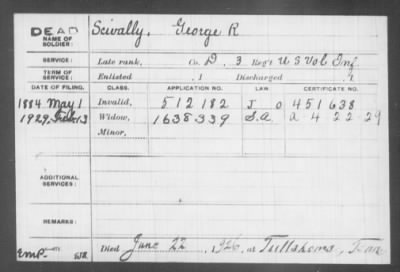 DEAD
NAME OF SOLDIER: Scivally, George R
SERVICE: Late rank, Co. D, 3 Reg't U S Vol Inf
TERM OF SERVICE: Enlisted , 1 Discharged , 1
DATE OF FILING. CLASS. APPLICATION NO. LAW CERTIFICATE NO.
1884 May 1 Invalid, 512182 J O 451638
1929, Feb 13 Widow, 1638339 S.A. a 4 22 29
Minor,
ADDITIONAL SERVICES:
REMARKS:
EMP Died June 22, 1926, at Tullahoma, Tenn